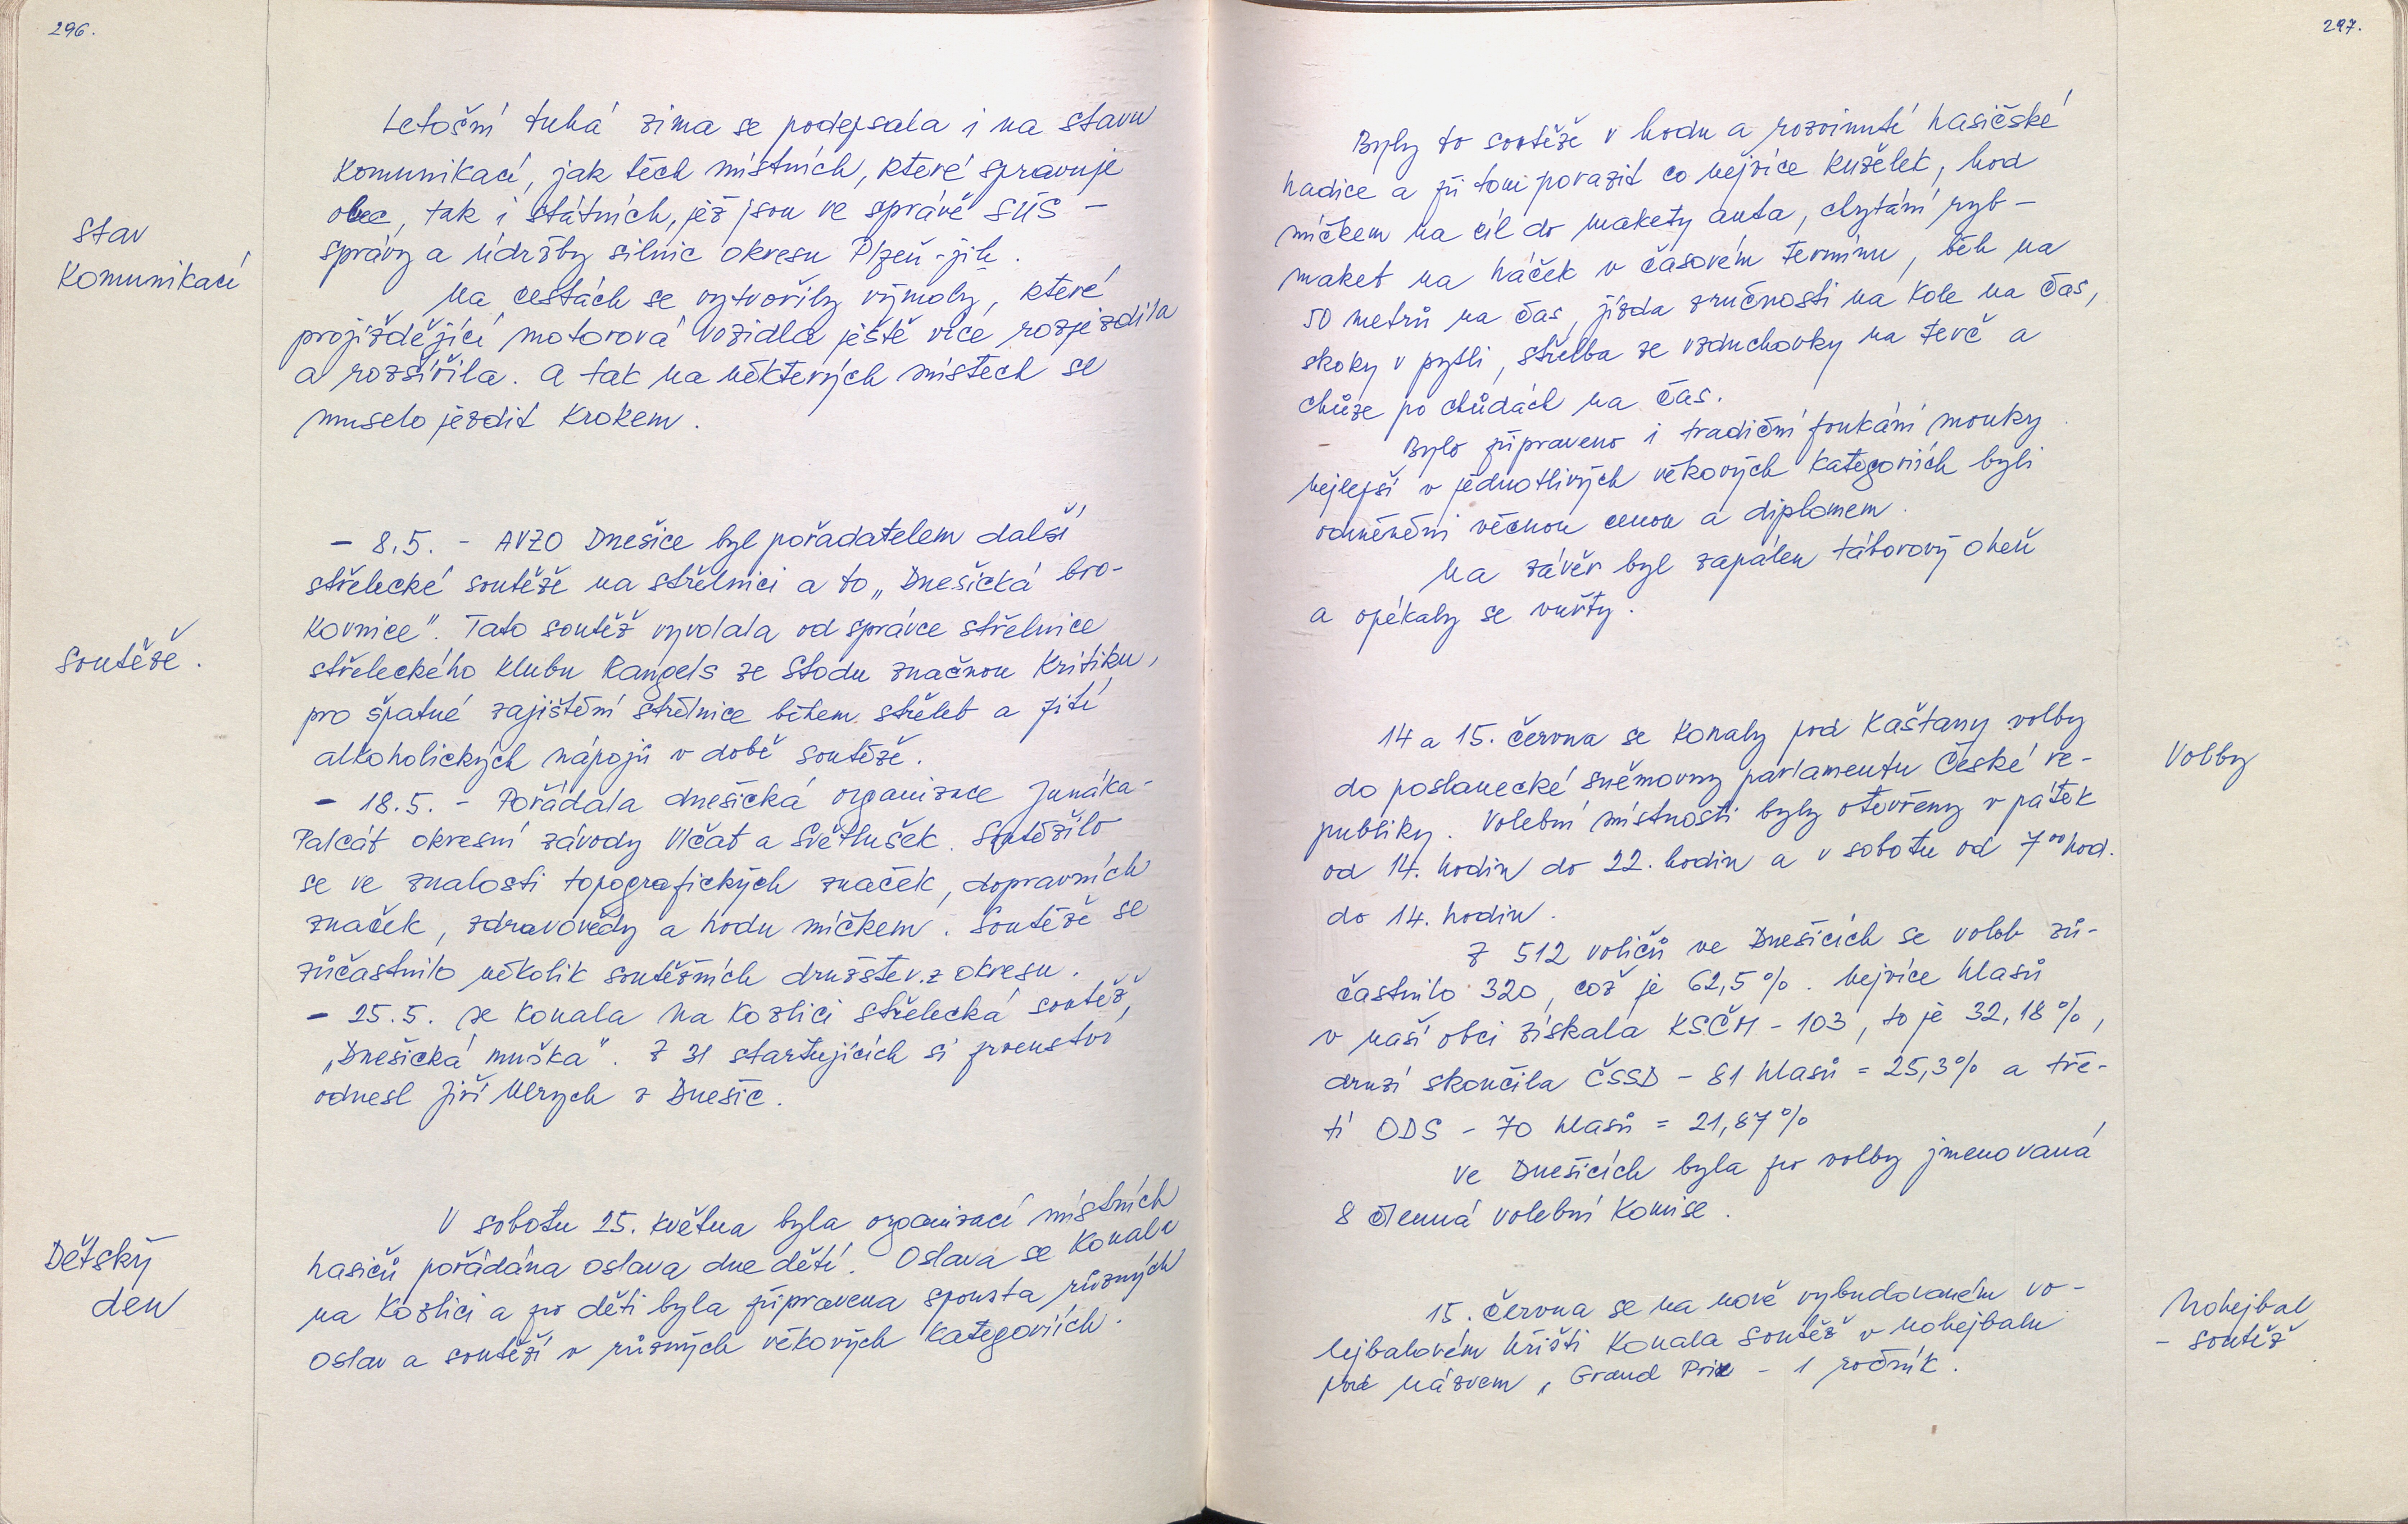 296.
Letošní tuhá zima se podepsala i na stavu
Stav
Komunikací
komunikací, jak těch místních, které spravuje
obec, tak i státních, jež jsou ve správě SÚS -
správy a údržby silnic okresu Plzeň-jih.
Na cestách se vytvořily výmoly, které
projíždějící motorová vozidla ještě více rozjezdila
a rozšířila. A tak na některých místech se
muselo jezdit krokem.
Soutěže.
- 8.5. - AVZO Dnešice byl pořadatelem další
střelecké soutěže na střelnici a to „Dnešická bro-
kovnice". Tato soutěž vyvolala od správce střelnice
střeleckého klubu Rangels ze Stodu značnou kritiku,
pro špatné zajištění střelnice během střeleb a pití
alkoholických nápojů v době soutěže.
- 18.5. - Pořádala dnešická organizace Junáka-
Palcát okresní závody Vlčat a Světlušek. Soutěžilo
se ve znalosti topografických značek, dopravních
značek, zdravovědy a hodu míčkem. Soutěže se
zúčastnilo několik soutěžních družstev z okresu.
- 25.5. se konala na Kozlici střelecká soutěž,
„Dnešická muška". Z 31 startujících si prvenství
odnesl Jiří Ulrych z Dnešic.
Dětský
den
V sobotu 25. května byla organizací místních
hasičů pořádána oslava dne dětí. Oslava se konala
na Kozlici a pro děti byla připravena spousta různých
oslav a soutěží v různých věkových kategoriích.
297.
Byly to soutěže v hodu a rozvinutí hasičské
hadice a při tom porazit co nejvíce kuželek, hod
míčkem na cíl do makety auta, chytání ryb-
maket na háček v časovém termínu, běh na
50 metrů na čas, jízda zručnosti na kole na čas,
skoky v pytli, střelba ze vzduchovky na terč a
chůze po chůdách na čas.
Bylo připraveno i tradiční foukání mouky.
Nejlepší v jednotlivých věkových kategoriích byli
odměněni věcnou cenou a diplomem.
Na závěr byl zapálen táborový oheň
a opékaly se vuřty.
Volby
14 a 15. června se konaly pod Kaštany volby
do poslanecké sněmovny parlamentu České re-
publiky. Volební místnosti byly otevřeny v pátek
od 14. hodin do 22. hodin a v sobotu od 7⁰⁰ hod.
do 14. hodin.
Z 512 voličů ve Dnešicích se voleb zú-
častnilo 320, což je 62,5%. Nejvíce hlasů
v naší obci získala KSČM - 103, to je 32,18%,
druzí skončila ČSSD - 81 hlasů = 25,3% a tře-
tí ODS - 70 hlasů = 21,87%
Ve Dnešicích byla pro volby jmenovaná
8 členná volební komise.
Nohejbal
- soutěž
15. června se na nově vybudovaném vo-
lejbalovém hřišti konala soutěž v nohejbalu
pod názvem „Grand Prix - 1 ročník.